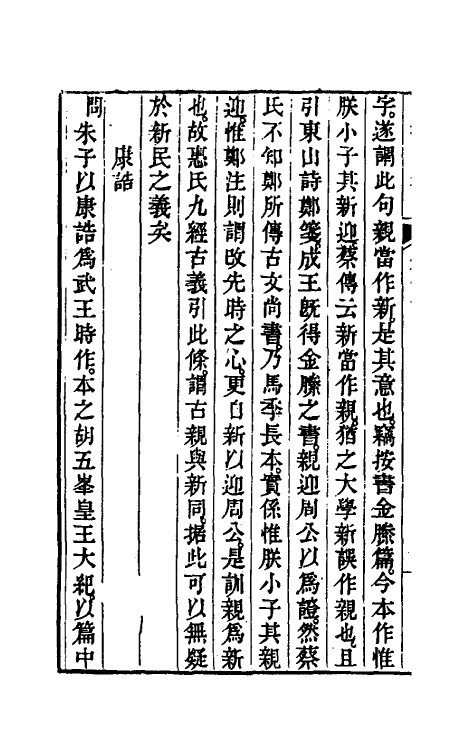 字。遂謂此句親當作新。是其意也。竊按書金縢篇。今本作惟
朕小子其新迎。蔡傳云新當作親。猶之大學新誤作親也。且
引東山詩鄭箋。成王既得金縢之書。親迎周公以為證。然蔡
氏不知鄭所傳古文尚書。乃馬季長本。實係惟朕小子其親
迎。惟鄭注則謂改先時之心。更自新以迎周公。是訓親為新
也。故惠氏九經古義引此條。謂古親與新同。据此可以無疑
於新民之義矣
康誥
問朱子以康誥為武王時作。本之胡五峯皇王大紀。以篇中